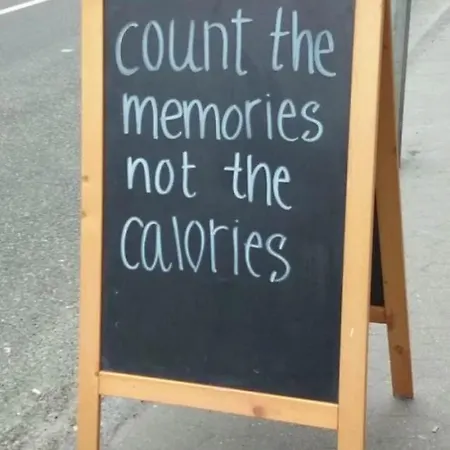 count the
memories
not the
calories